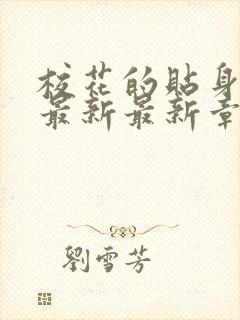 校花的貼身
最新最新章
劉雪芳